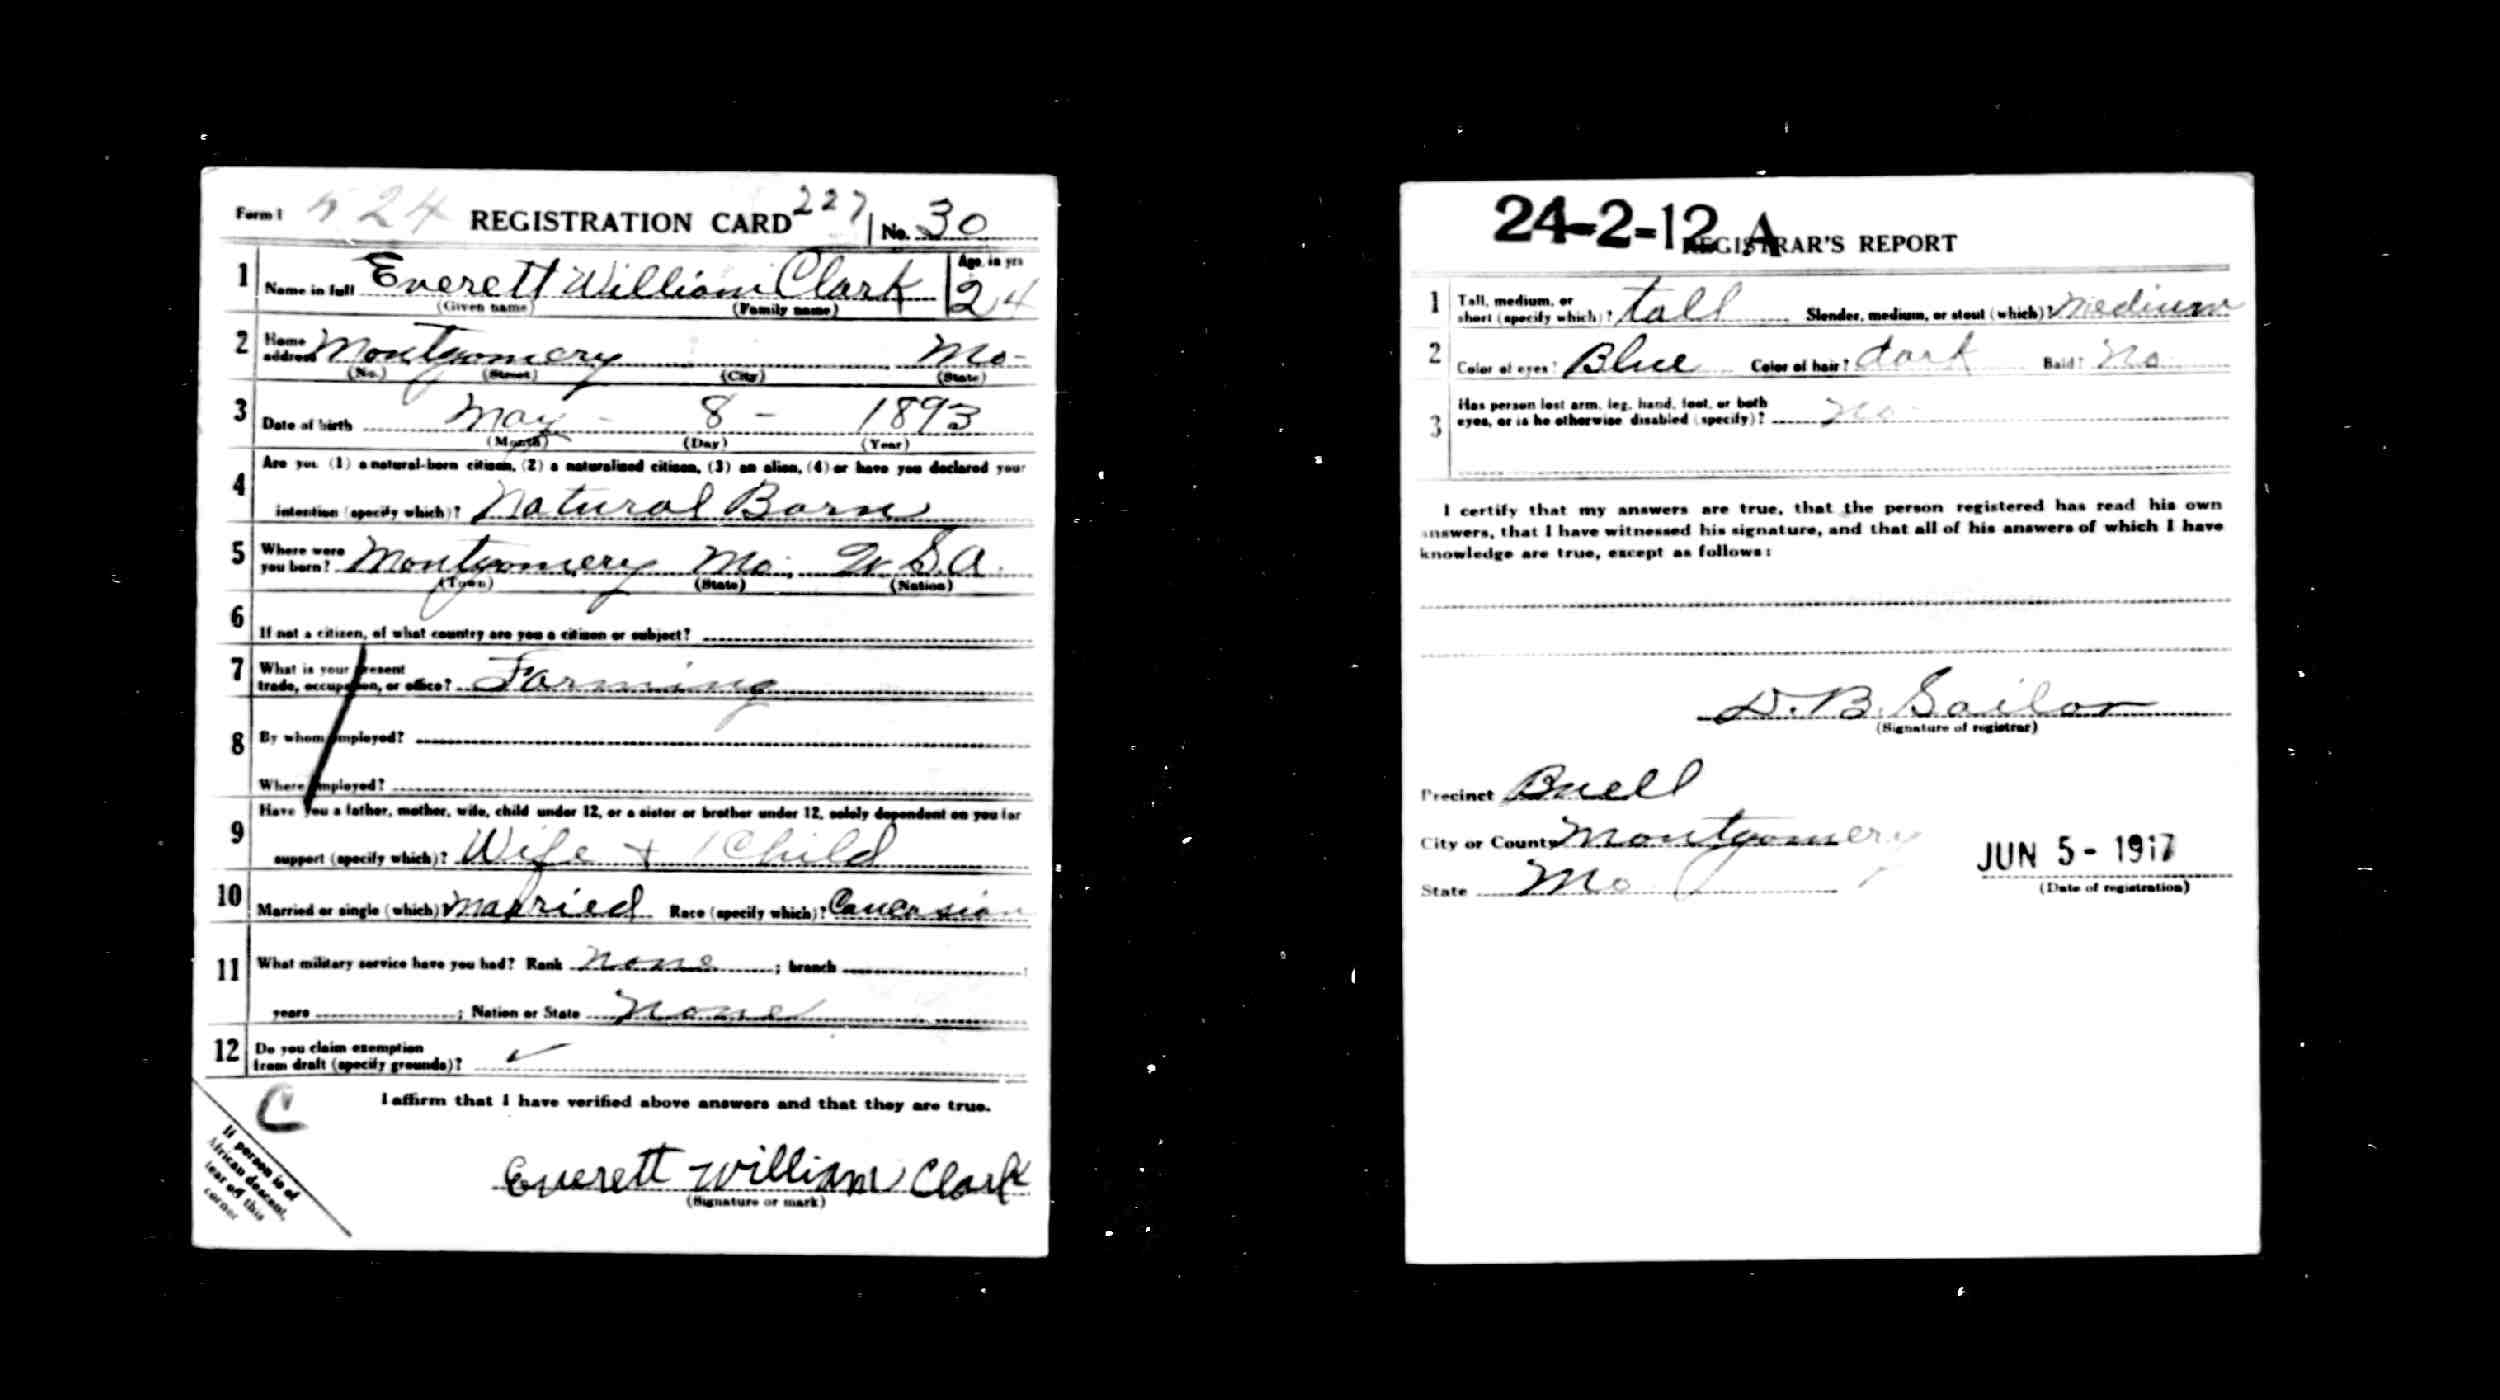 Form 1 524 REGISTRATION CARD 227 No. 30
1 Name in full Everett William Clark Age, in yrs 24
(Given name) (Family name)
2 Home address Montgomery Mo-
(No.) (Street) (City) (State)
3 Date of birth May - 8 - 1893
(Month) (Day) (Year)
4 Are you (1) a natural-born citizen, (2) a naturalized citizen, (3) an alien, (4) or have you declared your
intention (specify which)? Natural Born
5 Where were you born? Montgomery Mo. U.S.A.
(Town) (State) (Nation)
6 If not a citizen, of what country are you a citizen or subject?
7 What is your present
trade, occupation, or office? Farming
8 By whom employed?
Where employed?
9 Have you a father, mother, wife, child under 12, or a sister or brother under 12, solely dependent on you for
support (specify which)? Wife + 1 Child
10 Married or single (which)? Married Race (specify which)? Caucasian
11 What military service have you had? Rank none ; branch
years ; Nation or State None
12 Do you claim exemption
from draft (specify grounds)? ✓
I affirm that I have verified above answers and that they are true.
C
If person is of
African descent,
tear off this
corner
Everett William Clark
(Signature or mark)
24-2-12 A
REGISTRAR'S REPORT
1 Tall, medium, or
short (specify which)? tall Slender, medium, or stout (which)? Medium
2 Color of eyes? Blue Color of hair? dark Bald? No
3 Has person lost arm, leg, hand, foot, or both
eyes, or is he otherwise disabled (specify)? No-
I certify that my answers are true, that the person registered has read his own
answers, that I have witnessed his signature, and that all of his answers of which I have
knowledge are true, except as follows:
D. B. Sailor
(Signature of registrar)
Precinct Buell
City or County Montgomery
State Mo
JUN 5 - 1917
(Date of registration)